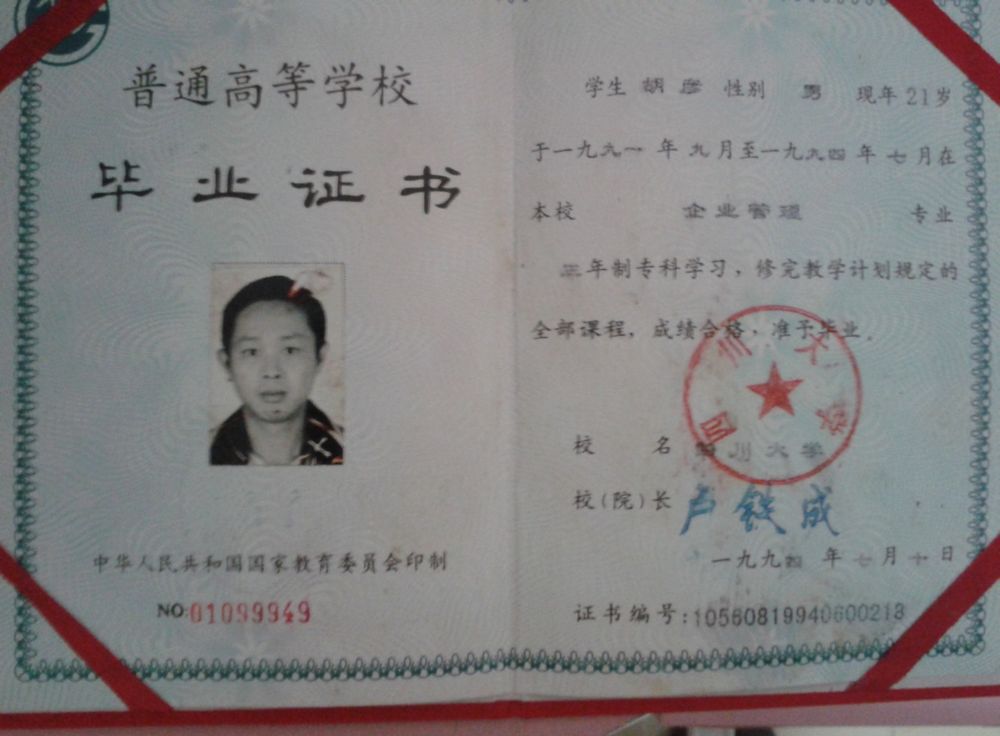 普通高等学校
毕业证书
中华人民共和国国家教育委员会印制
NO:01099949
学生 胡彦 性别 男 现年21岁
于一九九一年九月至一九九四年七月在
本校 企业管理 专业
三年制专科学习，修完教学计划规定的
全部课程，成绩合格，准予毕业。
四川大学
校 名 四川大学
校(院)长 卢铁成
一九九四年七月十日
证书编号:10560819940600218